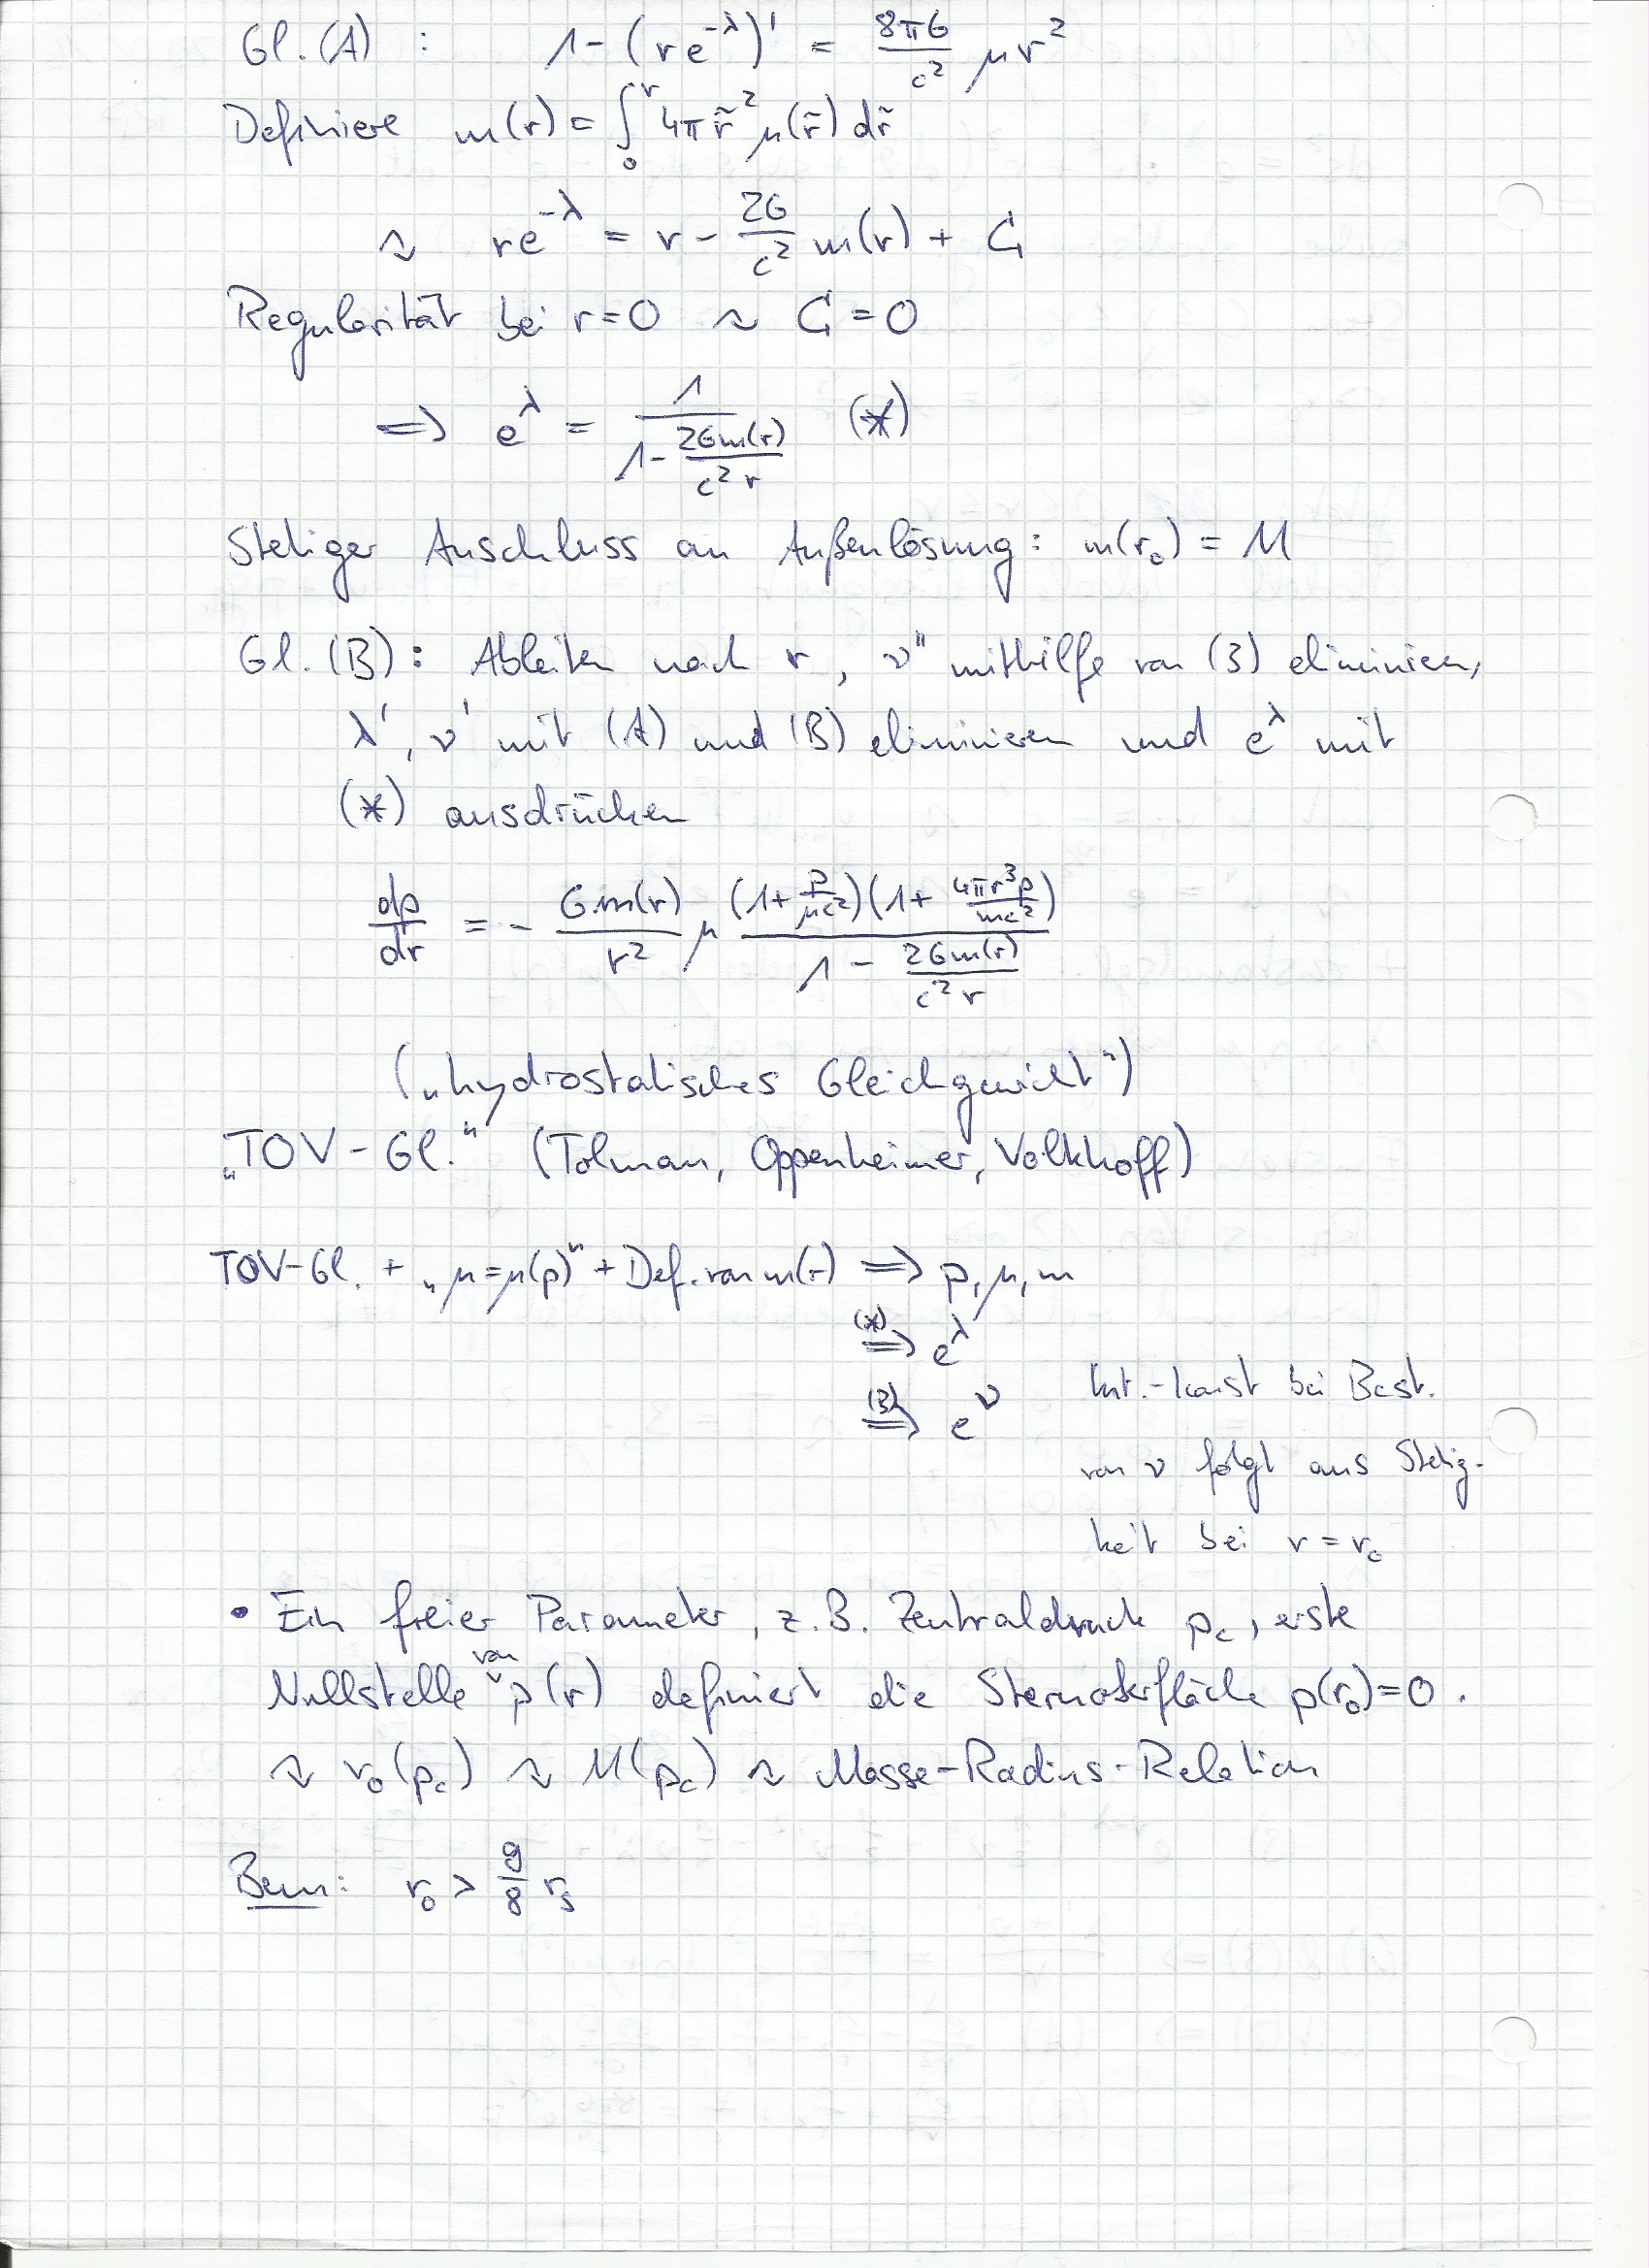 Gl. (A) : 1 - (r e^{-λ})' = \frac{8πG}{c^2} μ r^2
Definiere m(r) = ∫_0^r 4π r̃^2 μ(r̃) dr̃
↷ r e^{-λ} = r - \frac{2G}{c^2} m(r) + C_1
Regularität bei r=0 ↷ C_1 = 0
⟹ e^λ = \frac{1}{1 - \frac{2Gm(r)}{c^2 r}} (*)
Stetiger Anschluss an Außenlösung: m(r_0) = M
Gl. (B): Ableiten nach r, ν'' mithilfe von (3) eliminieren,
λ', ν' mit (A) und (B) eliminieren und e^λ mit
(*) ausdrücken
\frac{dp}{dr} = - \frac{G m(r)}{r^2} μ \frac{(1+\frac{p}{μc^2})(1+\frac{4πr^3p}{mc^2})}{1 - \frac{2Gm(r)}{c^2 r}}
(„hydrostatisches Gleichgewicht“)
„TOV-Gl.“ (Tolman, Oppenheimer, Volkhoff)
TOV-Gl. + „μ=μ(p)“ + Def. von m(r) ⟹ p, μ, m
(*) ⟹ e^λ
(B) ⟹ e^ν
Int.-konst bei Best.
von ν folgt aus Stetig-
keit bei r = r_0
• Ein freier Parameter, z.B. Zentraldruck p_c, erste
Nullstelle von p(r) definiert die Sternoberfläche p(r_0)=0.
↷ r_0(p_c) ↷ M(p_c) ↷ Masse-Radius-Relation
Bem: r_0 > \frac{9}{8} r_s